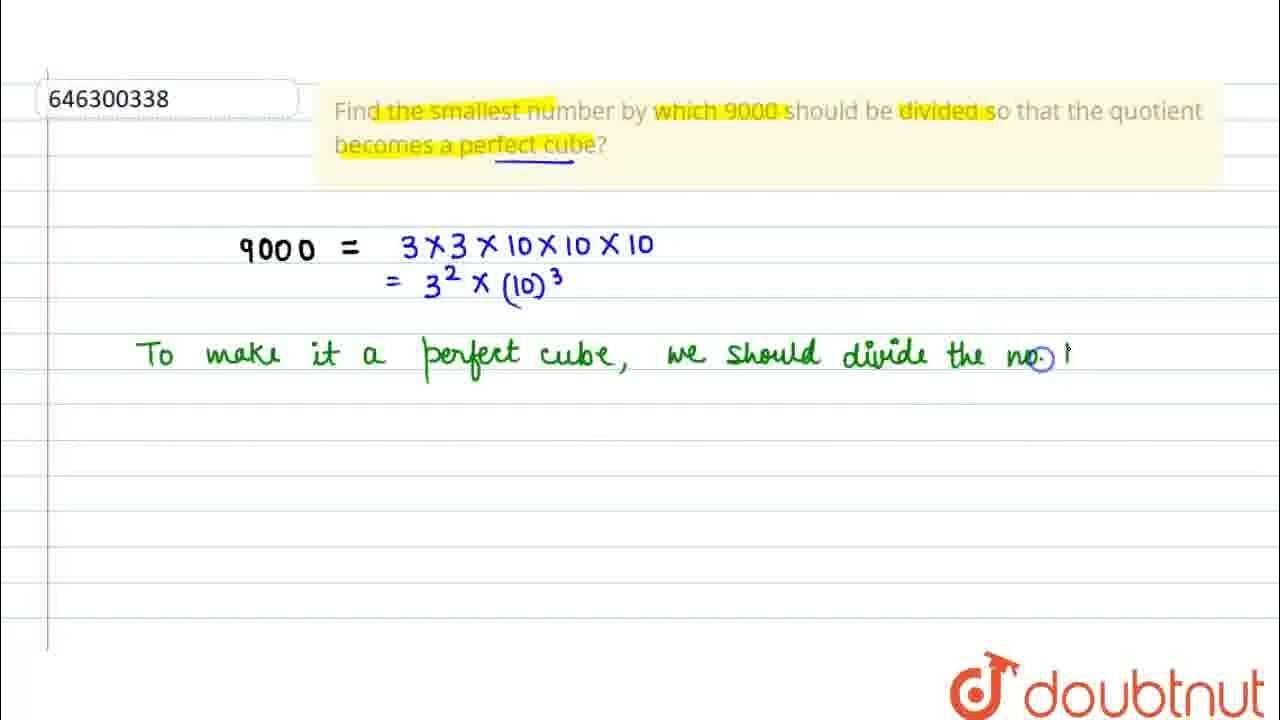 646300338
Find the smallest number by which 9000 should be divided so that the quotient
becomes a perfect cube?
9000 = 3 × 3 × 10 × 10 × 10
= 3² × (10)³
To make it a perfect cube, we should divide the no.
doubtnut